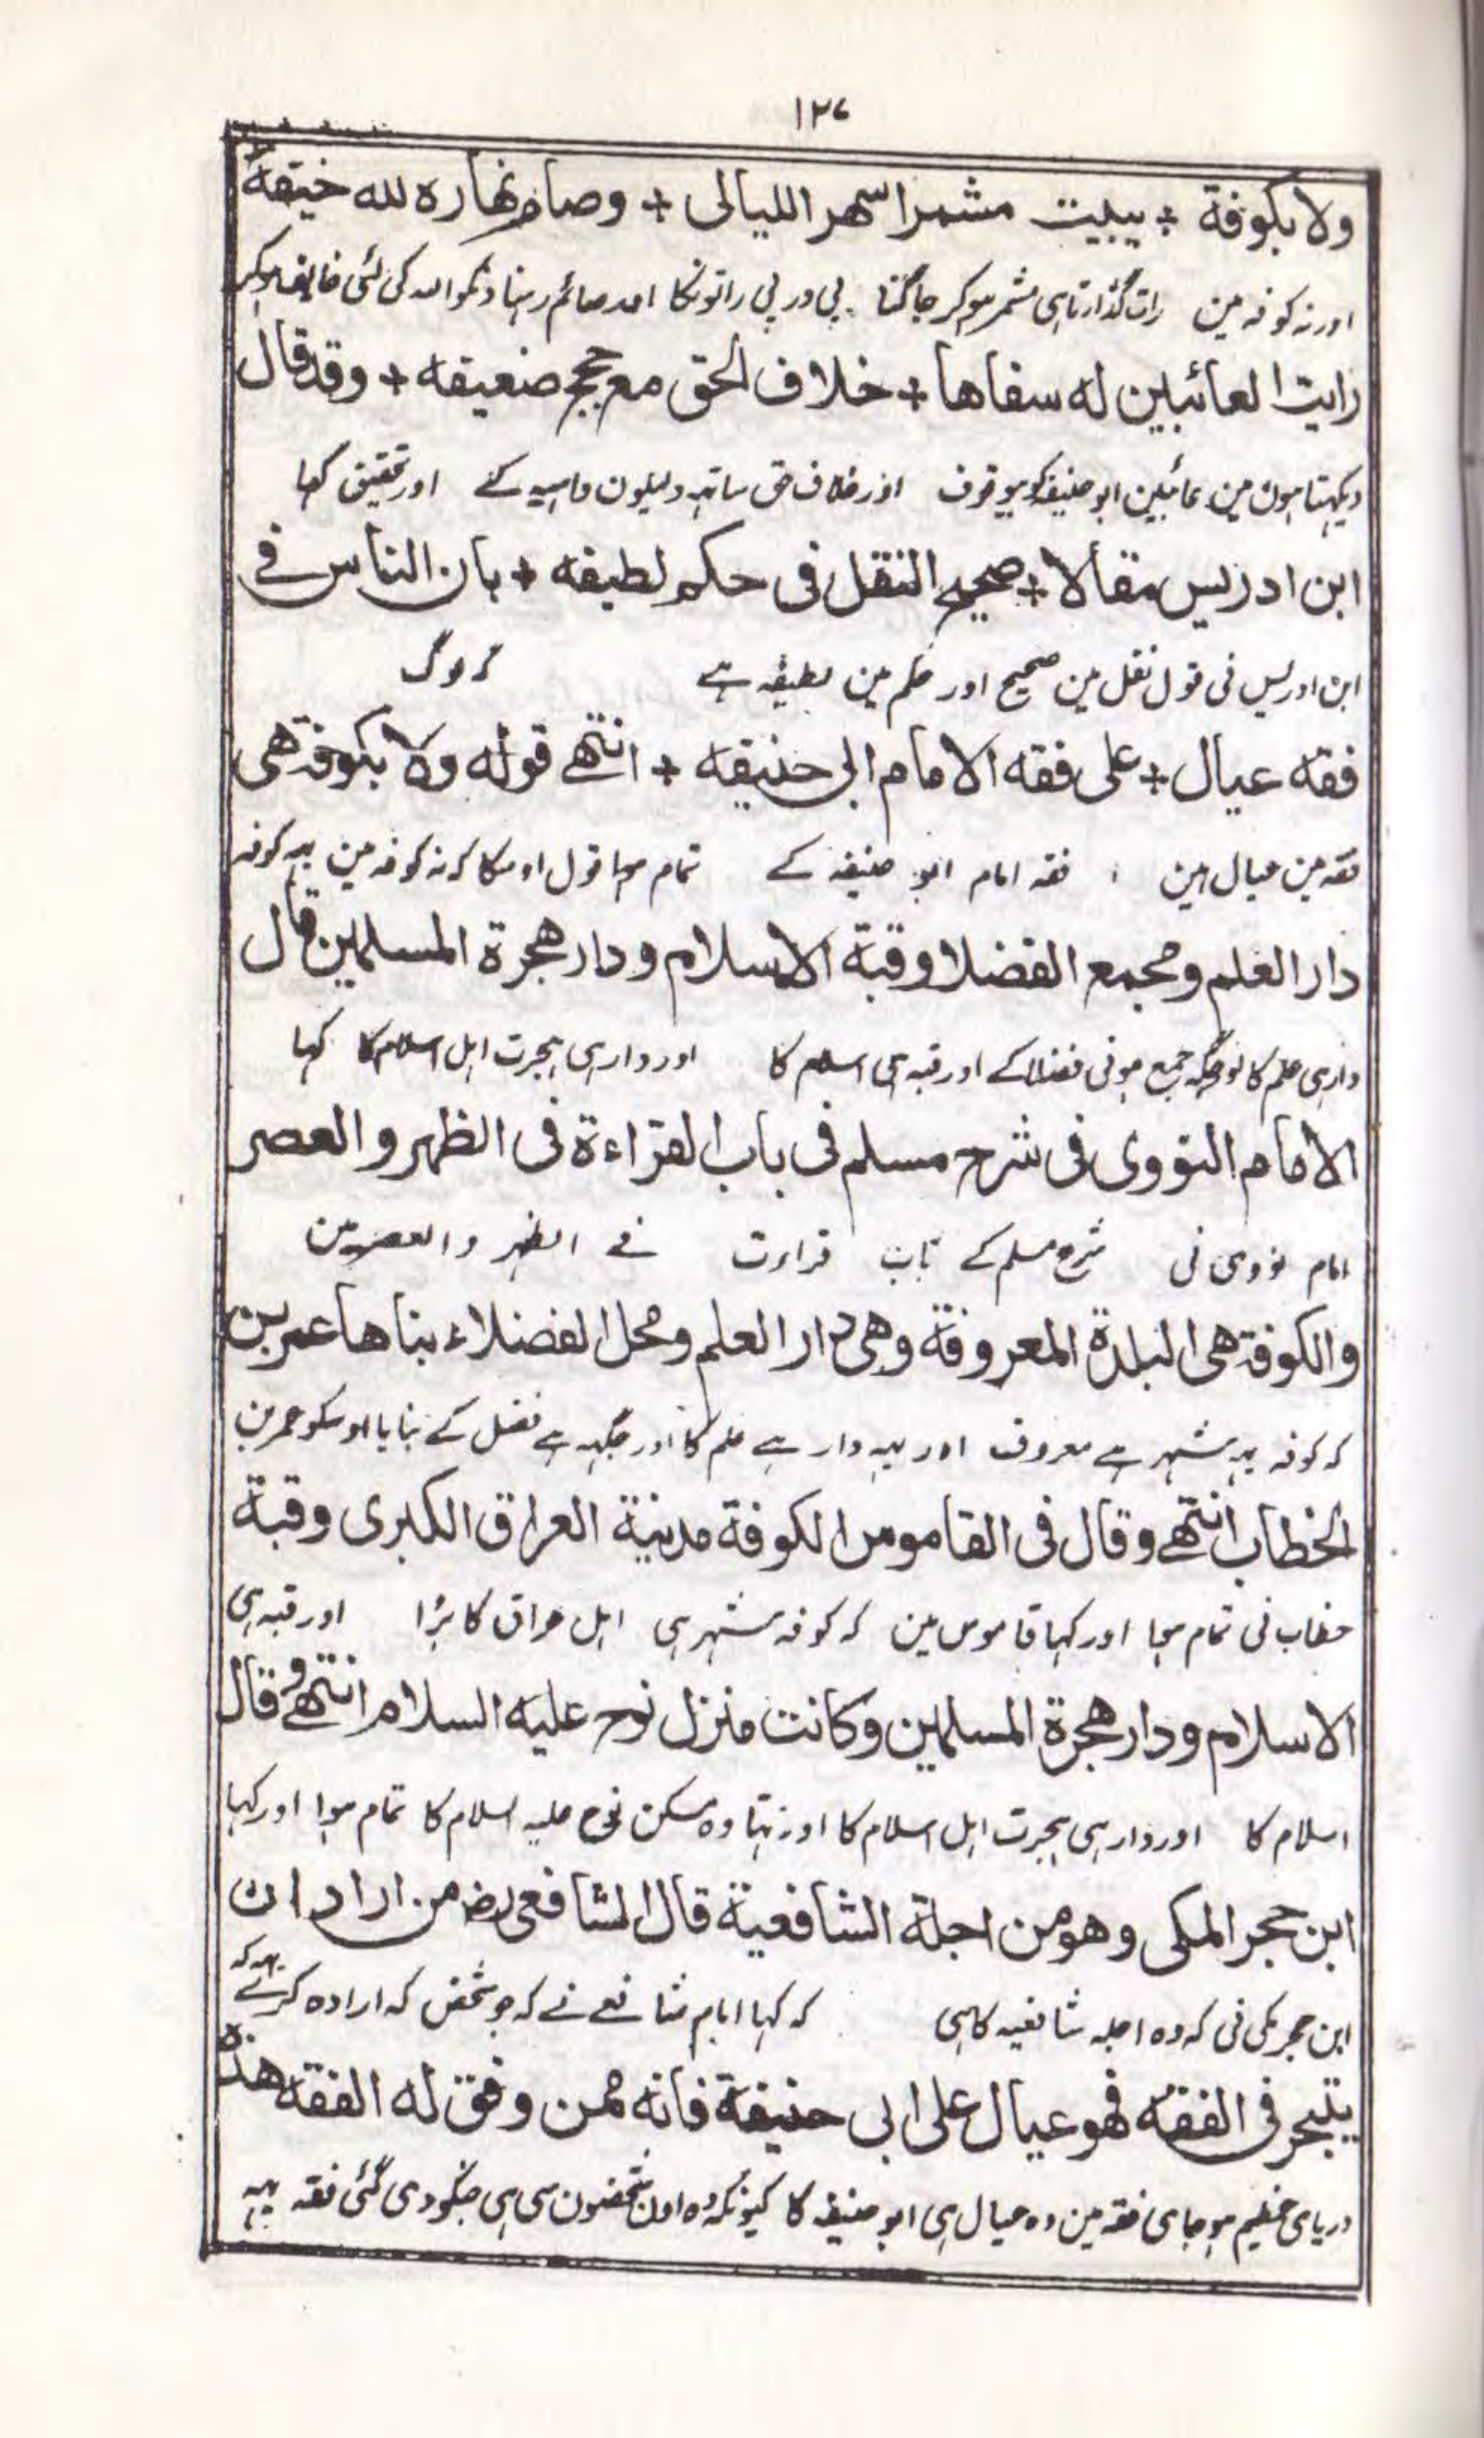 ۱۲۷
ولا بکوفة + یبیت مشمرا سهر اللیالی + وصام نهاره لله خیفة
اور نہ کوفہ مین رات گذارتا ہی مشمر ہو کر جاگنا پی در پی راتونکا اور صائم رہنا دنکو اللہ کی لئی خائف ہو کر
رایت العائبین له سفاها + خلاف الحق مع حجج ضعیفه + وقد قال
دیکہتا ہون مین عائبین ابو حنیفہ کو بیوقوف اور خلاف حق ساتہہ دلیلون واہیہ کے اور تحقیق کہا
ابن ادریس مقالا + صحیح النقل فی حکم لطیفه + بان الناس فے
ابن ادریس نی قول نقل مین صحیح اور حکم مین لطیفہ ہے کہ لوگ
فقه عیال + علی فقه الامام ابی حنیفه + انتهے قوله ولا بکوفة هی
فقہ مین عیال ہین فقہ امام ابو حنیفہ کے تمام ہوا قول اوسکا کہ نہ کوفہ مین یہہ کوفہ
دار العلم ومجمع الفضلا وقبة الاسلام ودار هجرة المسلمین قال
دار ہی علم کا اور جگہ جمع ہونی فضلا کے اور قبہ ہی اسلام کا اور دار ہی ہجرت اہل اسلام کا کہا
الامام النووی فی شرح مسلم فی باب القراءة فی الظهر والعصر
امام نووی نی شرح مسلم کے باب قراءت فے الظہر والعصر مین
والکوفة هی البلدة المعروفة وهی دار العلم ومحل الفضلاء بناها عمر بن
کہ کوفہ یہہ شہر ہے معروف اور یہہ دار ہے علم کا اور جگہہ ہے فضل کے بنایا اوسکو عمر بن
الخطاب انتهے وقال فی القاموس الکوفة مدینة العراق الکبری وقبة
خطاب نی تمام ہوا اور کہا قاموس مین کہ کوفہ شہر ہی اہل عراق کا بڑا اور قبہ ہی
الاسلام ودار هجرة المسلمین وکانت منزل نوح علیه السلام انتهے وقال
اسلام کا اور دار ہی ہجرت اہل اسلام کا اور تہا وہ مسکن نوح علیہ اسلام کا تمام ہوا اور کہا
ابن حجر المکی وهو من اجلة الشافعیة قال الشافعی رض من اراد ان
ابن حجر مکی نی کہ وہ اجلہ شافعیہ کا ہی کہ کہا امام شافعے نے کہ جو شخص کہ ارادہ کرے یہہ کہ
یتبحر فی الفقه فهو عیال علی ابی حنیفة فانه ممن وفق له الفقه هذه
دریای عظیم ہو جای فقہ مین وہ عیال ہی ابو حنیفہ کا کیونکہ وہ اون شخصون سی ہی جنکو دی گئی فقہ یہہ